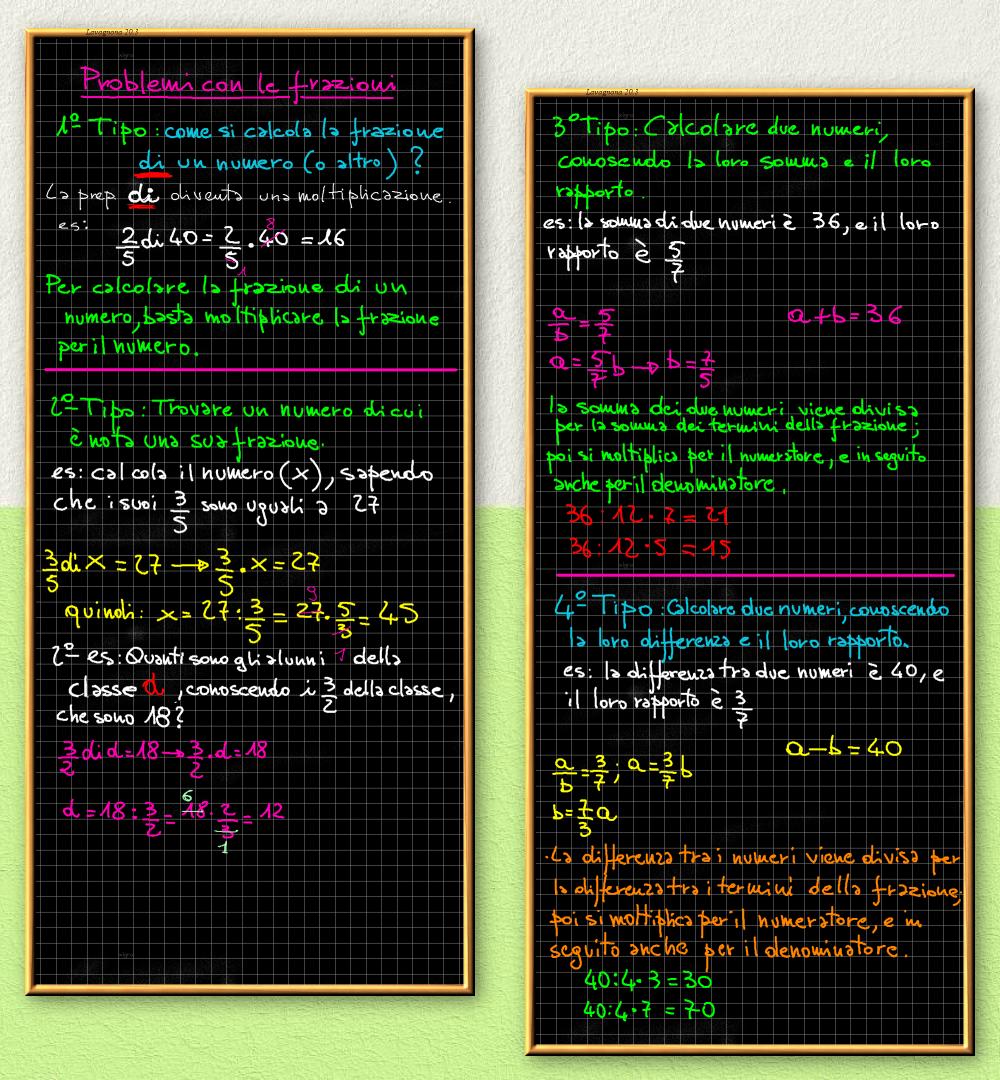 Lavagnona 20.3
Problemi con le frazioni
1º Tipo: come si calcola la frazione
di un numero (o altro) ?
La prep di diventa una moltiplicazione.
es: 2/5 di 40 = 2/5 . 40 = 16
8
1
Per calcolare la frazione di un
numero, basta moltiplicare la frazione
per il numero.
2º Tipo: Trovare un numero di cui
è nota una sua frazione.
es: calcola il numero (x), sapendo
che i suoi 3/5 sono uguali a 27
3/5 di x = 27 → 3/5 . x = 27
9
quindi: x = 27 : 3/5 = 27 . 5/3 = 45
1
2º es: Quanti sono gli alunni della
classe d, conoscendo i 3/2 della classe,
che sono 18?
3/2 di d = 18 → 3/2 . d = 18
6
d = 18 : 3/2 = 18 . 2/3 = 12
1
Lavagnona 20.3
3º Tipo: Calcolare due numeri,
conosendo la loro somma e il loro
rapporto.
es: la somma di due numeri è 36, e il loro
rapporto è 5/7
a/b = 5/7 a+b = 36
a = 5/7 b → b = 7/5
la somma dei due numeri, viene divisa
per la somma dei termini della frazione;
poi si moltiplica per il numeratore, e in seguito
anche per il denominatore.
36 : 12 . 7 = 21
36 : 12 . 5 = 15
4º Tipo: Calcolare due numeri, conoscendo
la loro differenza e il loro rapporto.
es: la differenza tra due numeri è 40, e
il loro rapporto è 3/7
a-b = 40
a/b = 3/7 ; a = 3/7 b
b = 7/3 a
.La differenza tra i numeri viene divisa per
la differenza tra i termini della frazione;
poi si moltiplica per il numeratore, e in
seguito anche per il denominatore.
40:4.3 = 30
40:4.7 = 70